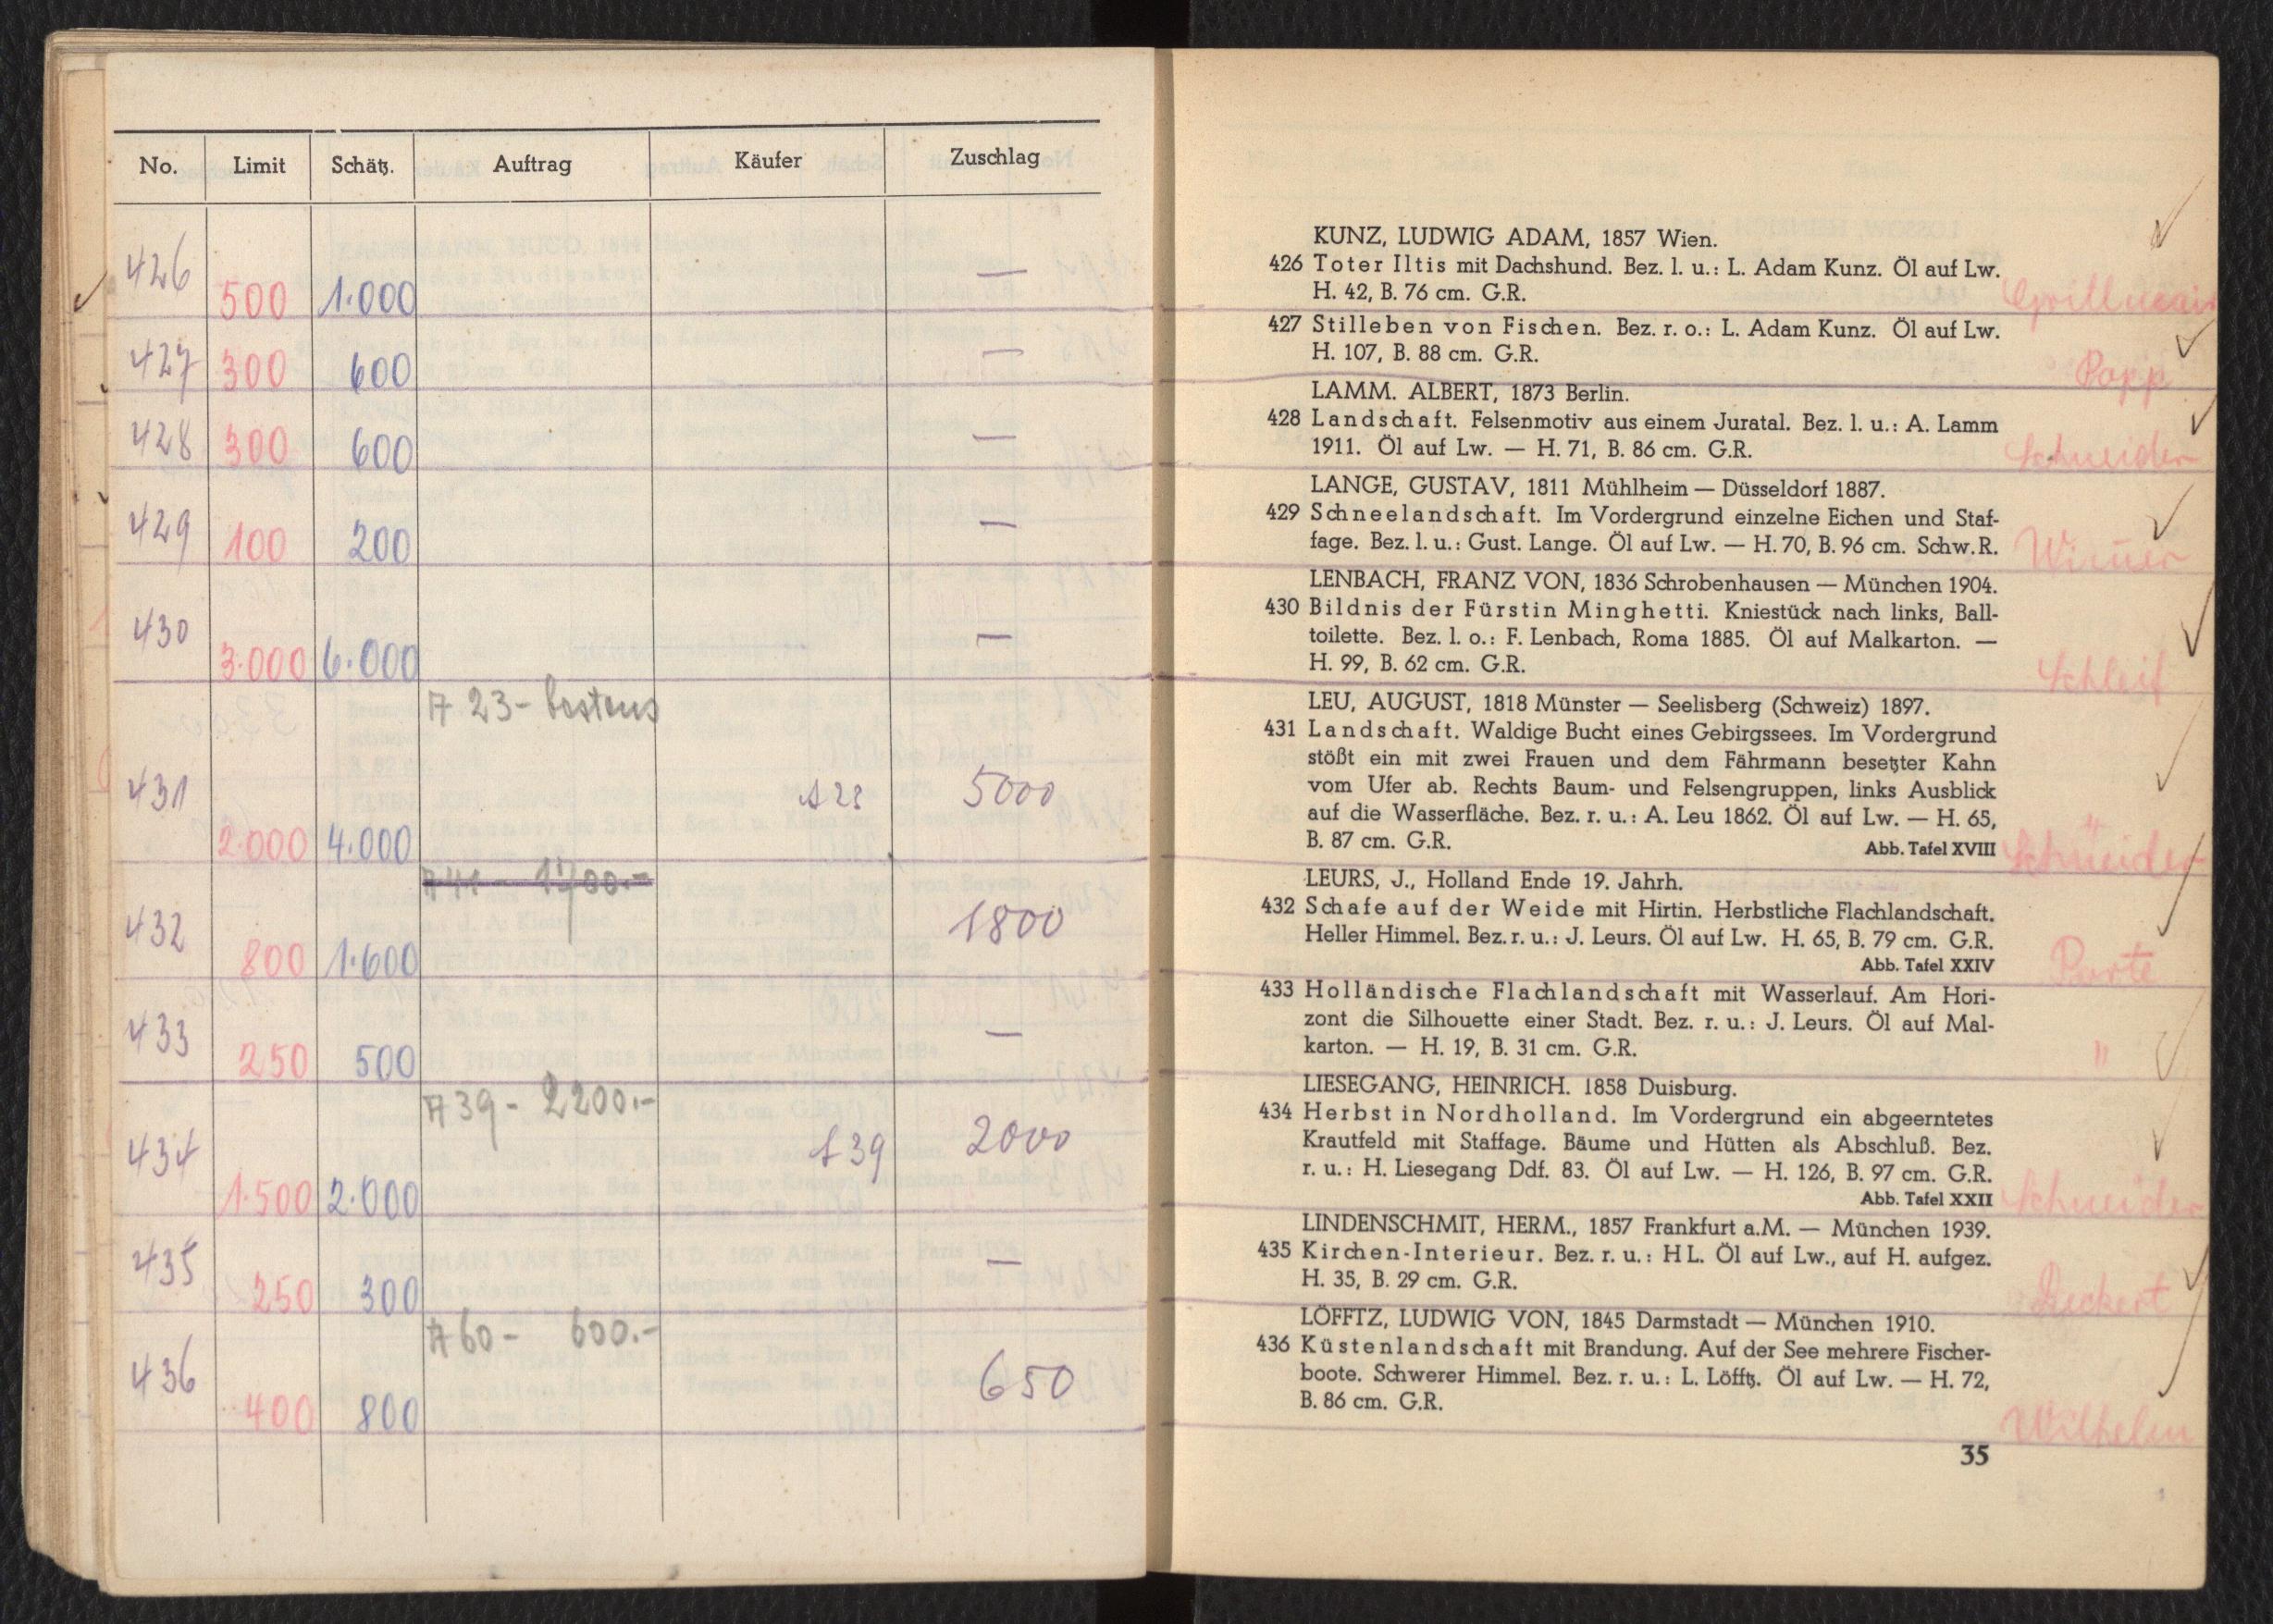 No. Limit Schätz. Auftrag Käufer Zuschlag
426 500 1.000 —
427 300 600 —
428 300 600 —
429 100 200 —
430 3.000 6.000 —
A 23 - bestens
431 2.000 4.000 A 23 5000
A 41 -
432 800 1.600 1800
433 250 500 —
A 39 - 2200.-
434 1.500 2.000 A 39 2000
435 250 300 —
A 60 - 600.-
436 400 800 650
KUNZ, LUDWIG ADAM, 1857 Wien.
426 Toter Iltis mit Dachshund. Bez. l. u.: L. Adam Kunz. Öl auf Lw.
H. 42, B. 76 cm. G.R.
427 Stilleben von Fischen. Bez. r. o.: L. Adam Kunz. Öl auf Lw.
H. 107, B. 88 cm. G.R.
Popp
LAMM. ALBERT, 1873 Berlin.
428 Landschaft. Felsenmotiv aus einem Juratal. Bez. l. u.: A. Lamm
1911. Öl auf Lw. — H. 71, B. 86 cm. G.R.
Schneider
LANGE, GUSTAV, 1811 Mühlheim — Düsseldorf 1887.
429 Schneelandschaft. Im Vordergrund einzelne Eichen und Staf-
fage. Bez. l. u.: Gust. Lange. Öl auf Lw. — H. 70, B. 96 cm. Schw. R.
LENBACH, FRANZ VON, 1836 Schrobenhausen — München 1904.
430 Bildnis der Fürstin Minghetti. Kniestück nach links, Ball-
toilette. Bez. l. o.: F. Lenbach, Roma 1885. Öl auf Malkarton. —
H. 99, B. 62 cm. G.R.
Schleif
LEU, AUGUST, 1818 Münster — Seelisberg (Schweiz) 1897.
431 Landschaft. Waldige Bucht eines Gebirgssees. Im Vordergrund
stößt ein mit zwei Frauen und dem Fährmann besetzter Kahn
vom Ufer ab. Rechts Baum- und Felsengruppen, links Ausblick
auf die Wasserfläche. Bez. r. u.: A. Leu 1862. Öl auf Lw. — H. 65,
B. 87 cm. G.R. Abb. Tafel XVIII
" Schneider
LEURS, J., Holland Ende 19. Jahrh.
432 Schafe auf der Weide mit Hirtin. Herbstliche Flachlandschaft.
Heller Himmel. Bez. r. u.: J. Leurs. Öl auf Lw. H. 65, B. 79 cm. G.R.
Abb. Tafel XXIV
433 Holländische Flachlandschaft mit Wasserlauf. Am Hori-
zont die Silhouette einer Stadt. Bez. r. u.: J. Leurs. Öl auf Mal-
karton. — H. 19, B. 31 cm. G.R.
"
LIESEGANG, HEINRICH. 1858 Duisburg.
434 Herbst in Nordholland. Im Vordergrund ein abgeerntetes
Krautfeld mit Staffage. Bäume und Hütten als Abschluß. Bez.
r. u.: H. Liesegang Ddf. 83. Öl auf Lw. — H. 126, B. 97 cm. G.R.
Abb. Tafel XXII
Schneider
LINDENSCHMIT, HERM., 1857 Frankfurt a.M. — München 1939.
435 Kirchen-Interieur. Bez. r. u.: HL. Öl auf Lw., auf H. aufgez.
H. 35, B. 29 cm. G.R.
LÖFFTZ, LUDWIG VON, 1845 Darmstadt — München 1910.
436 Küstenlandschaft mit Brandung. Auf der See mehrere Fischer-
boote. Schwerer Himmel. Bez. r. u.: L. Löfftz. Öl auf Lw. — H. 72,
B. 86 cm. G.R.
Wilhelm
35